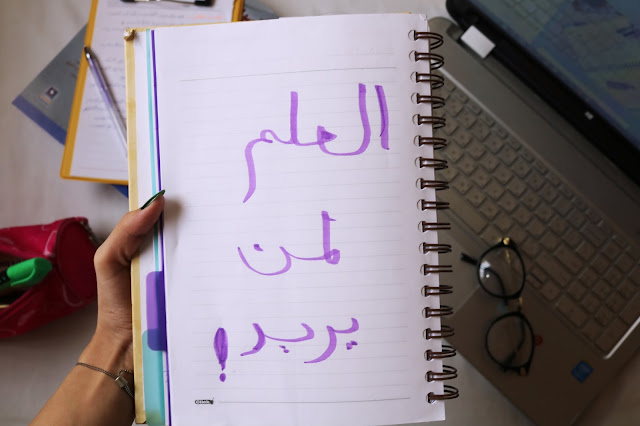 العلم
لمن
يريد!